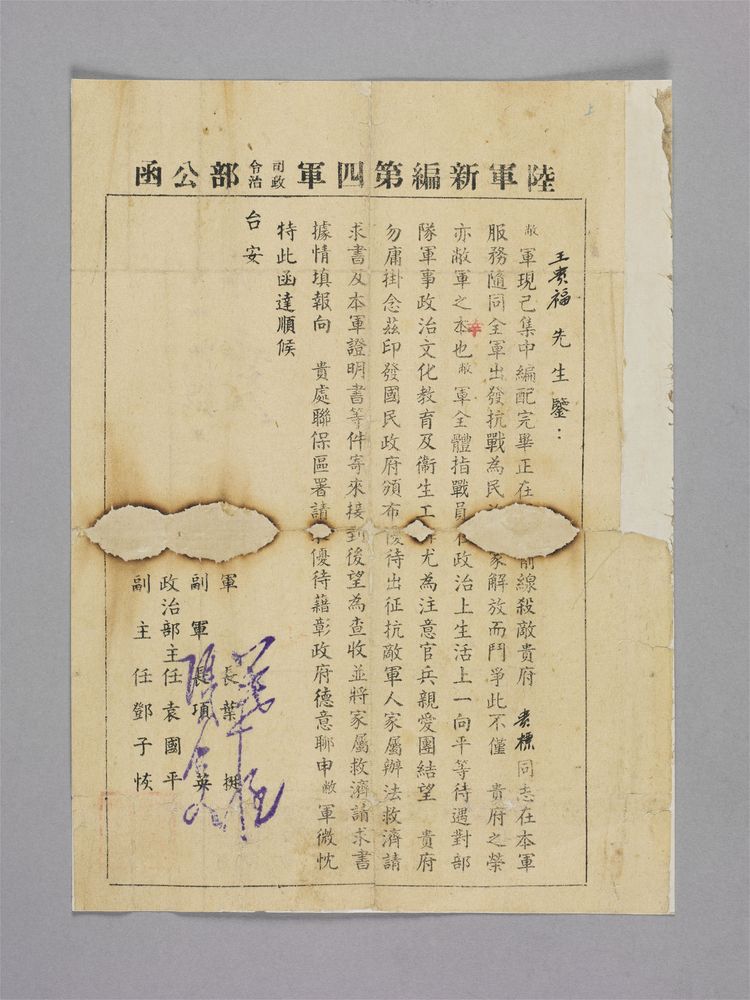 陸軍新編第四軍司令政治部公函
王貴福先生鑒：
敝軍現已集中編配完畢正在前線殺敵貴府貴標同志在本軍
服務隨同全軍出發抗戰為民家解放而鬥爭此不僅　貴府之榮
亦敝軍之本幸也敝軍全體指戰員在政治上生活上一向平等待遇對部
隊軍事政治文化教育及衛生工作尤為注意官兵親愛團結望　貴府
勿庸掛念茲印發國民政府頒布優待出征抗敵軍人家屬辦法救濟請
求書及本軍證明書等件寄來接到後望為查收並將家屬救濟請求書
據情填報向　貴處聯保區署請求優待藉彰政府德意聊申敝軍微忱
特此函達順候
台安
軍長葉挺
副軍長項英
政治部主任袁國平
副主任鄧子恢